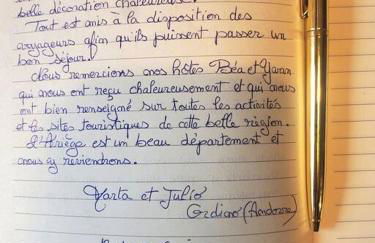 belle décoration chaleureuse.
Tout est mis à la disposition des
voyageurs afin qu'ils puissent passer un
bon séjour.
Nous remercions nos hôtes Béa et Yovan
qui nous ont reçu chaleureusement et qui nous
ont bien renseigné sur toutes les activités
et les sites touristiques de cette belle région.
L'Ariège est un beau département et
nous y reviendrons.
Marta et Julio
Ordino (Andorre)